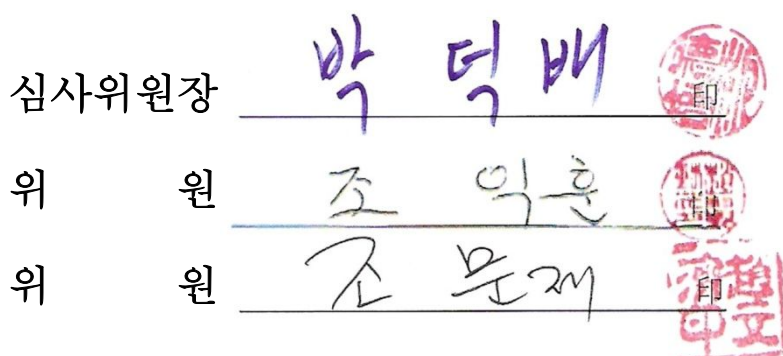 심사위원장 박 덕 배 印
위 원 조 익 훈 印
위 원 조 문 재 印